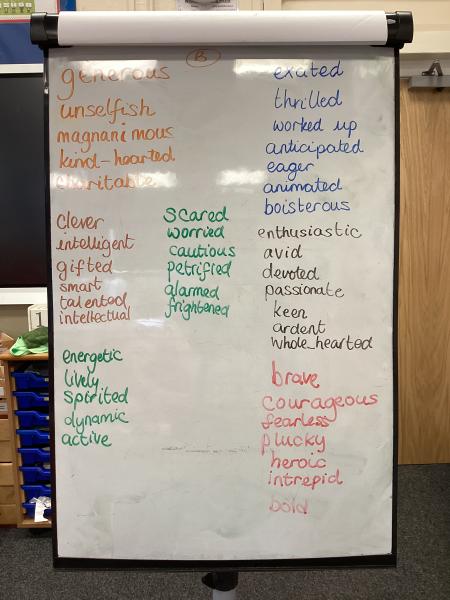 B
generous
unselfish
magnanimous
kind-hearted
charitable
clever
intelligent
gifted
smart
talented
intellectual
energetic
lively
spirited
dynamic
active
scared
worried
cautious
petrified
alarmed
frightened
exated
thrilled
worked up
anticipated
eager
animated
boisterous
enthusiastic
avid
devoted
passionate
keen
ardent
whole-hearted
brave
courageous
fearless
plucky
heroic
intrepid
bold